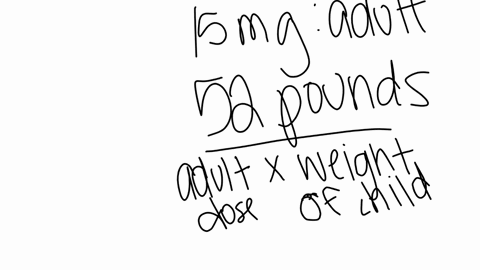 15mg: adult
52 pounds
adult x weight
dose of child